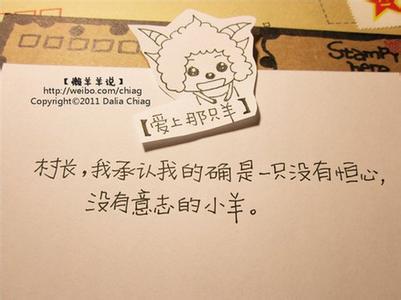 STAMP
here
【懒羊羊说】
http://weibo.com/chiag
Copyright©2011 Dalia Chiag
【爱上那只羊】
村长，我承认我的确是一只没有恒心，
没有意志的小羊。